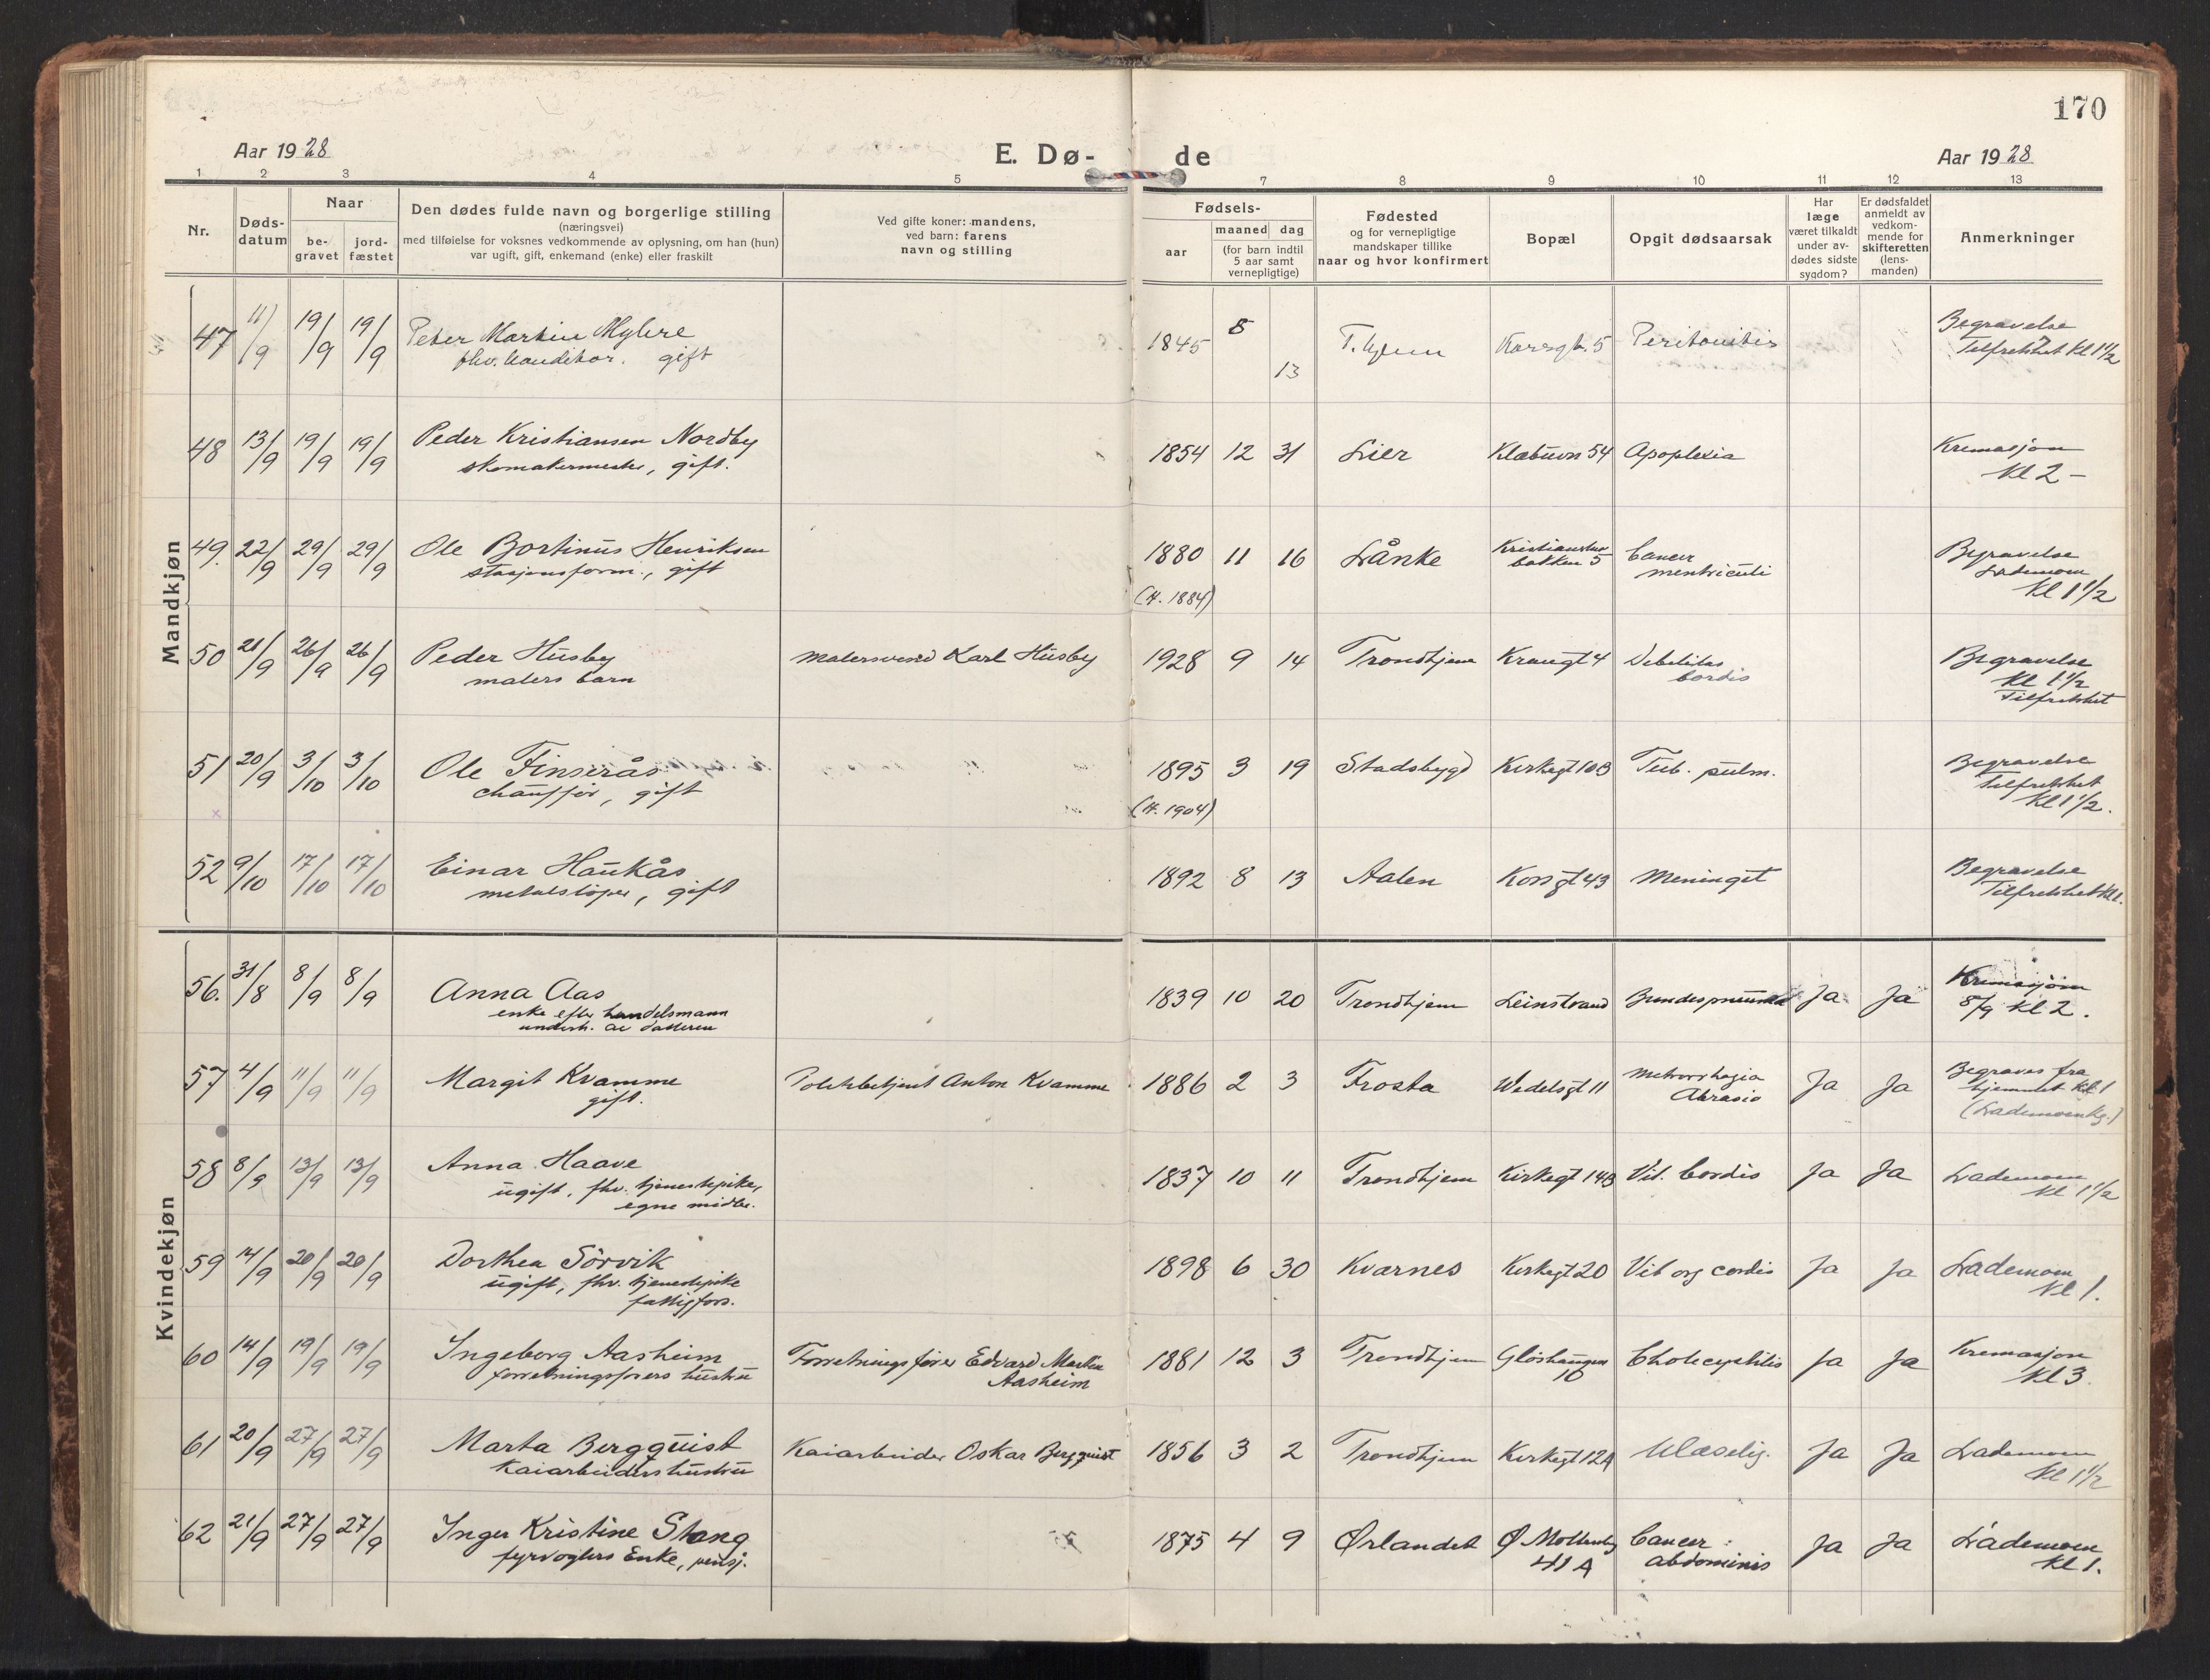 170
Aar 1928
E. Dø-
de
Aar 1928
1 2 3 4 5 7 8 9 10 11 12 13
Nr.
Døds-
datum
Naar
be-
gravet
jord-
fæstet
Den dødes fulde navn og borgerlige stilling
(næringsvei)
med tilføielse for voksnes vedkommende av oplysning, om han (hun)
var ugift, gift, enkemand (enke) eller fraskilt
Ved gifte koner: mandens,
ved barn: farens
navn og stilling
Fødsels-
aar
maaned dag
(for barn indtil
5 aar samt
vernepligtige)
Fødested
og for vernepligtige
mandskaper tillike
naar og hvor konfirmert
Bopæl
Opgit dødsaarsak
Har
læge
været tilkaldt
under av-
dødes sidste
sygdom?
Er dødsfaldet
anmeldt av
vedkom-
mende for
skifteretten
(lens-
manden)
Anmerkninger
Mandkjøn
47 11/9 19/9 19/9 Peter Martin 1845 5 13 T.hjem 5 Peritonitis Begravelse
fhv. konditor. gift Tilfredshet Kl 1 1/2
48 13/9 19/9 19/9 Peder Kristiansen Nordby 1854 12 31 Lier Klæbuvn 54 Apoplexia Kremasjon
skomakermester, gift. Kl 2 –
49. 22/9 29/9 29/9 Ole Bortinus Henriksen 1880 11 16 Lånke Kristianstens Cancer Begravelse
stasjonsform., gift bakken 5 mentriculi Lademoen
(H. 1884) Kl 1 1/2
50 21/9 26/9 26/9 Peder Husby malersvend Karl Husby 1928 9 14 Trondhjem 4 Debilitas Begravelse
malers barn cordis Kl 1 1/2
Tilfredshet
51 20/9 3/10 3/10 Ole Finserås 1895 3 19 Stadsbygd Kirkegt 10B Tub. pulm. Begravelse
chauffør, gift Tilfredshet
(H. 1904) Kl 1 1/2.
52 9/10 17/10 17/10 Einar Haukås 1892 8 13 Aalen Korsgt 43 Meningit Begravelse
metalstøper, gift Tilfredshet Kl 1.
Kvindekjøn
56. 31/8 8/9 8/9 Anna Aas 1839 10 20 Trondhjem Leinstrand Ja Ja Kremasjon
enke efter handelsmann 8/9 Kl 2.
underh. av datteren
57 4/9 11/9 11/9 Margit Kvamme Politibetjent Anton Kvamme 1886 2 3 Frosta Wedelsgt 11 Metrorrhagia Ja Ja Begraves fra
gift. Abrasio hjemmet Kl 1
(Lademoenkg.)
58 8/9 13/9 13/9 Anna Haave 1837 10 11 Trondhjem Kirkegt 14B Vit. Cordis Ja Ja Lademoen
ugift, fhv. tjenestepike, Kl 1 1/2
egne midler.
59 14/9 20/9 20/9 Dorthea Sörvik 1898 6 30 Kvarnes Kirkegt 20 Vit org cordis Ja Ja Lademoen
ugift, fhv. tjenestepike Kl 1.
fattigfors.
60 14/9 19/9 19/9 Ingeborg Aasheim Forretningsfører Edvard Martin 1881 12 3 Trondhjem Glöshaugen Cholecystitis Ja Ja Kremasjon
forretningsførers hustru Aasheim 10 Kl 3.
61 20/9 27/9 27/9 Marta Bergquist Kaiarbeider Oskar Bergquist 1856 3 2 Trondhjem Kirkegt 12A Ulæselig. Ja Ja Lademoen
Kaiarbeiders hustru Kl 1 1/2
62 21/9 27/9 27/9 Inger Kristine Stang 1875 4 9 Ørlandet Ø Mollenbg Cancer Ja Ja Lademoen
fyrvogters Enke, pensj. 41 A abdominis Kl 1.